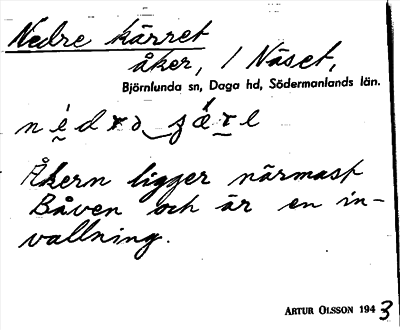 Nedre kärret
åker, 1 Näset,
Björnlunda sn, Daga hd, Södermanlands län.
Åkern ligger närmast
Båven och är en in-
vallning.
ARTUR OLSSON 1943